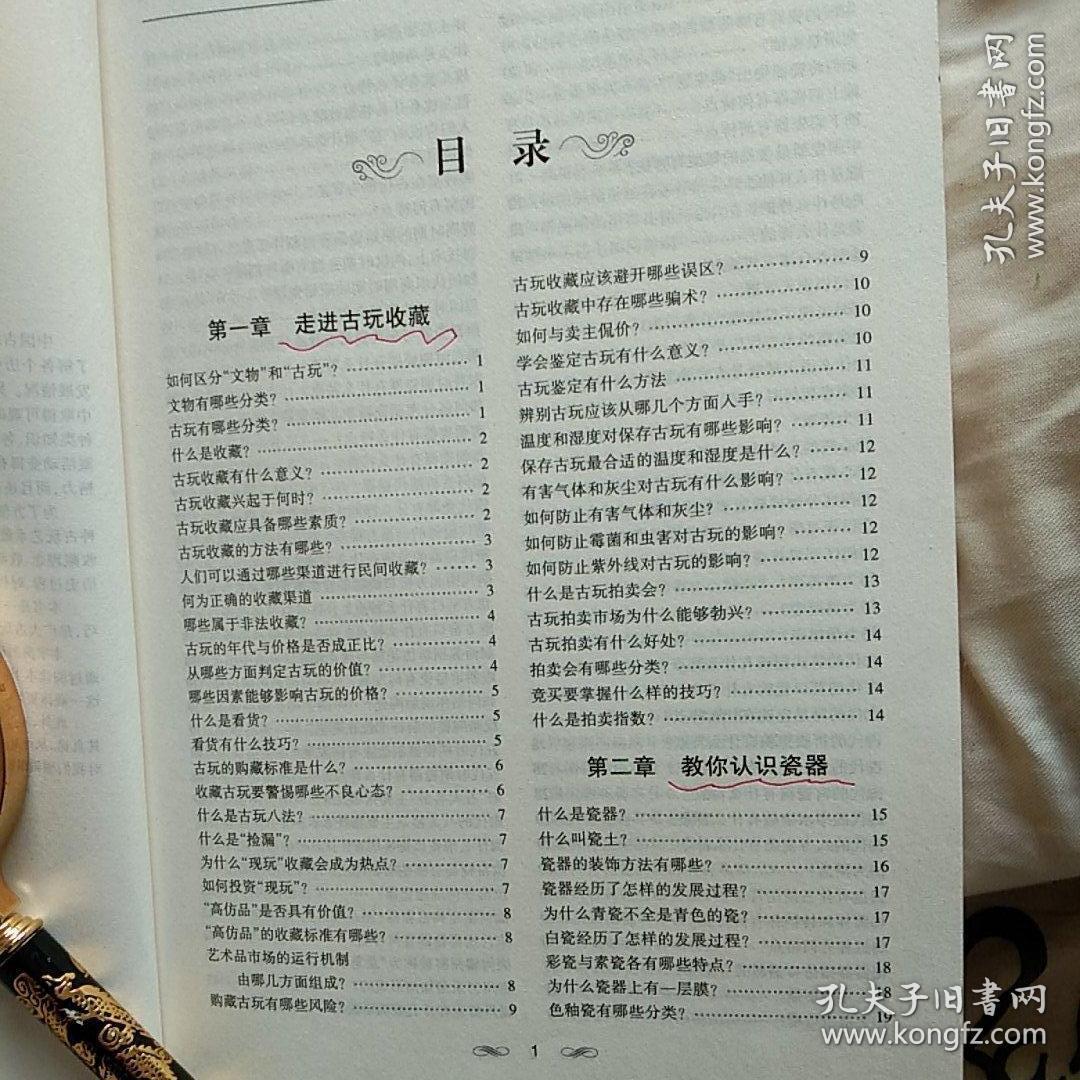 目 录
第一章 走进古玩收藏
如何区分“文物”和“古玩”? …… 1
文物有哪些分类? …… 1
古玩有哪些分类? …… 1
什么是收藏? …… 2
古玩收藏有什么意义? …… 2
古玩收藏兴起于何时? …… 2
古玩收藏应具备哪些素质? …… 2
古玩收藏的方法有哪些? …… 3
人们可以通过哪些渠道进行民间收藏? …… 3
何为正确的收藏渠道 …… 3
哪些属于非法收藏? …… 4
古玩的年代与价格是否成正比? …… 4
从哪些方面判定古玩的价值? …… 4
哪些因素能够影响古玩的价格? …… 5
什么是看货? …… 5
看货有什么技巧? …… 5
古玩的购藏标准是什么? …… 6
收藏古玩要警惕哪些不良心态? …… 6
什么是古玩八法? …… 7
什么是“捡漏”? …… 7
为什么“现玩”收藏会成为热点? …… 7
如何投资“现玩”? …… 7
“高仿品”是否具有价值? …… 8
“高仿品”的收藏标准有哪些? …… 8
艺术品市场的运行机制
由哪几方面组成? …… 8
购藏古玩有哪些风险? …… 9
古玩收藏应该避开哪些误区? …… 9
古玩收藏中存在哪些骗术? …… 10
如何与卖主侃价? …… 10
学会鉴定古玩有什么意义? …… 10
古玩鉴定有什么方法 …… 11
辨别古玩应该从哪几个方面入手? …… 11
温度和湿度对保存古玩有哪些影响? …… 11
保存古玩最合适的温度和湿度是什么? …… 12
有害气体和灰尘对古玩有什么影响? …… 12
如何防止有害气体和灰尘? …… 12
如何防止霉菌和虫害对古玩的影响? …… 12
如何防止紫外线对古玩的影响? …… 12
什么是古玩拍卖会? …… 13
古玩拍卖市场为什么能够勃兴? …… 13
古玩拍卖有什么好处? …… 14
拍卖会有哪些分类? …… 14
竞买要掌握什么样的技巧? …… 14
什么是拍卖指数? …… 14
第二章 教你认识瓷器
什么是瓷器? …… 15
什么叫瓷土? …… 15
瓷器的装饰方法有哪些? …… 16
瓷器经历了怎样的发展过程? …… 17
为什么青瓷不全是青色的瓷? …… 17
白瓷经历了怎样的发展过程? …… 17
彩瓷与素瓷各有哪些特点? …… 18
为什么瓷器上有一层膜? …… 18
色釉瓷有哪些分类? …… 19
1
孔夫子旧书网
www.kongfz.com
孔夫子旧书网
www.kongfz.com